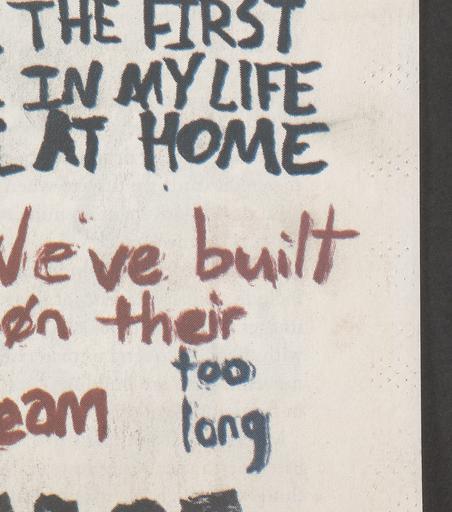 THE FIRST
IN MY LIFE
AT HOME
We've built
øn their
too
eam
long